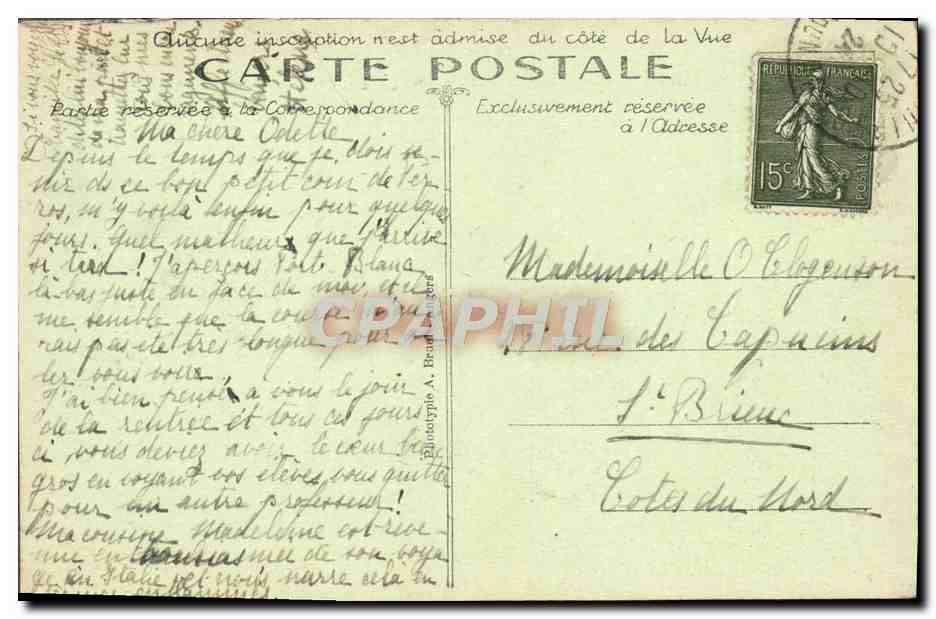 Aucune inscription n'est admise du côté de la Vue
CARTE POSTALE
Partie réservée à la Correspondance
Exclusivement réservée
à l'Adresse
RÉPUBLIQUE FRANÇAISE
15c
POSTES
Ma chère Odette
Depuis le temps que je dois ve-
nir ds ce bon petit coin de Per-
ros, m'y voilà enfin pour quelques
jours. Quel malheur que j'arrive
si tard ! J'aperçois Port Blanc
là bas juste en face de moi, et il
me semble que la course n'au-
rais pas été très longue pour al-
ler vous voir.
J'ai bien pensé à vous le jour
de la rentrée et tous ces jours
ci, vous deviez avoir le cœur bien
gros en voyant vos élèves vous quitter
pour un autre professeur !
Ma cousine Madeleine est reve-
nue enthousiasmée de son voya
ge en Italie et nous narre cela en
termes enflammés.
Mademoiselle O Clogenson
rue des Capucins
St Brieuc
Côtes du Nord
Phototypie A. Bruel Angers
CPAPHIL